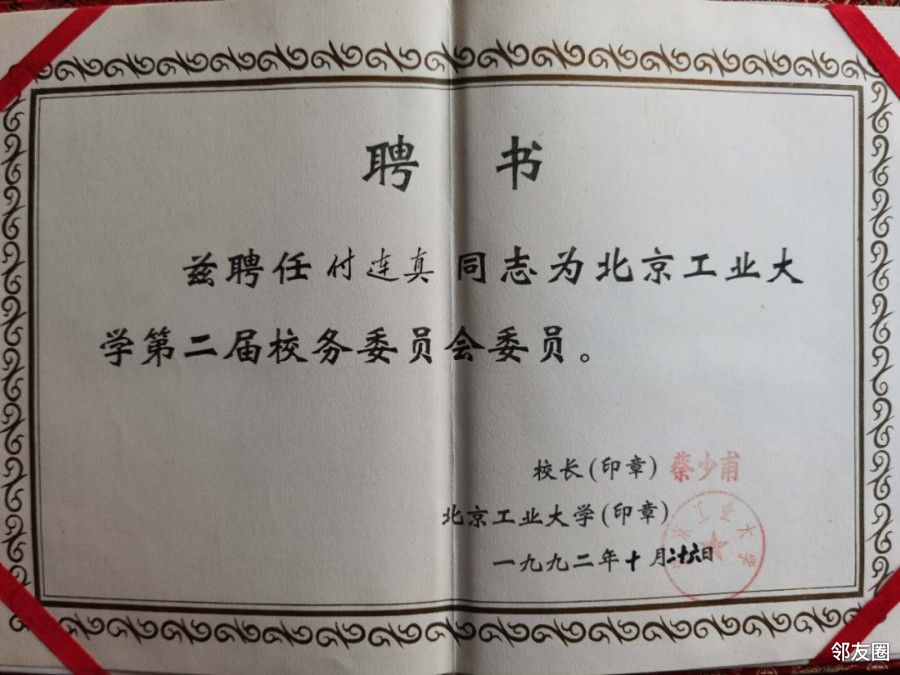 聘 书
兹聘任付连真同志为北京工业大
学第二届校务委员会委员。
校长(印章)蔡少甫
北京工业大学(印章)
一九九二年十月二十六日
北京工业大学
邻友圈